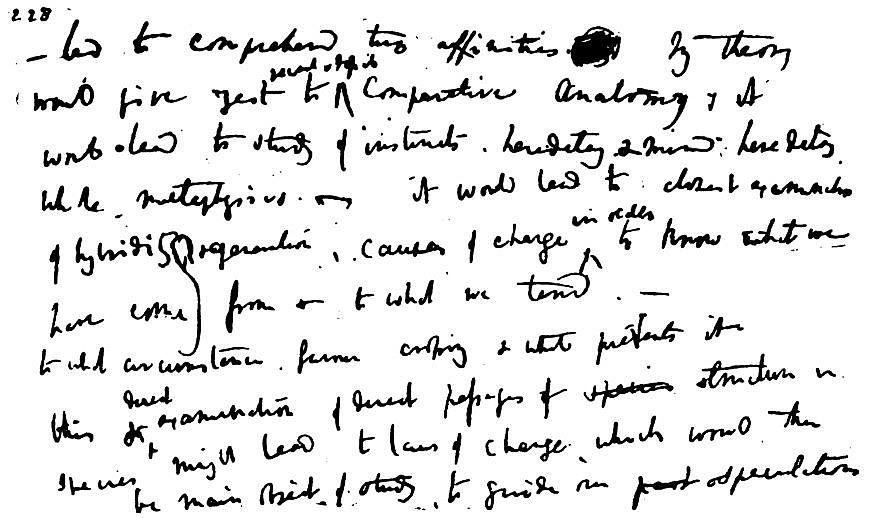 228
– led to comprehend true affinities. My theory
would give zest to recent & fossil Comparative Anatomy, & it
would lead to study of instincts, heredetary & mind heredetary,
whole metaphysics. – it would lead to closest examination
of hybridity regeneration, causes of change in order to know what we
have come from & to what we tend. –
to what circumstances favour crossing & what prevents it –
this & direct examination of direct passages of species structure in
species might lead to laws of change, which would then
be main object of study, to guide our past speculations